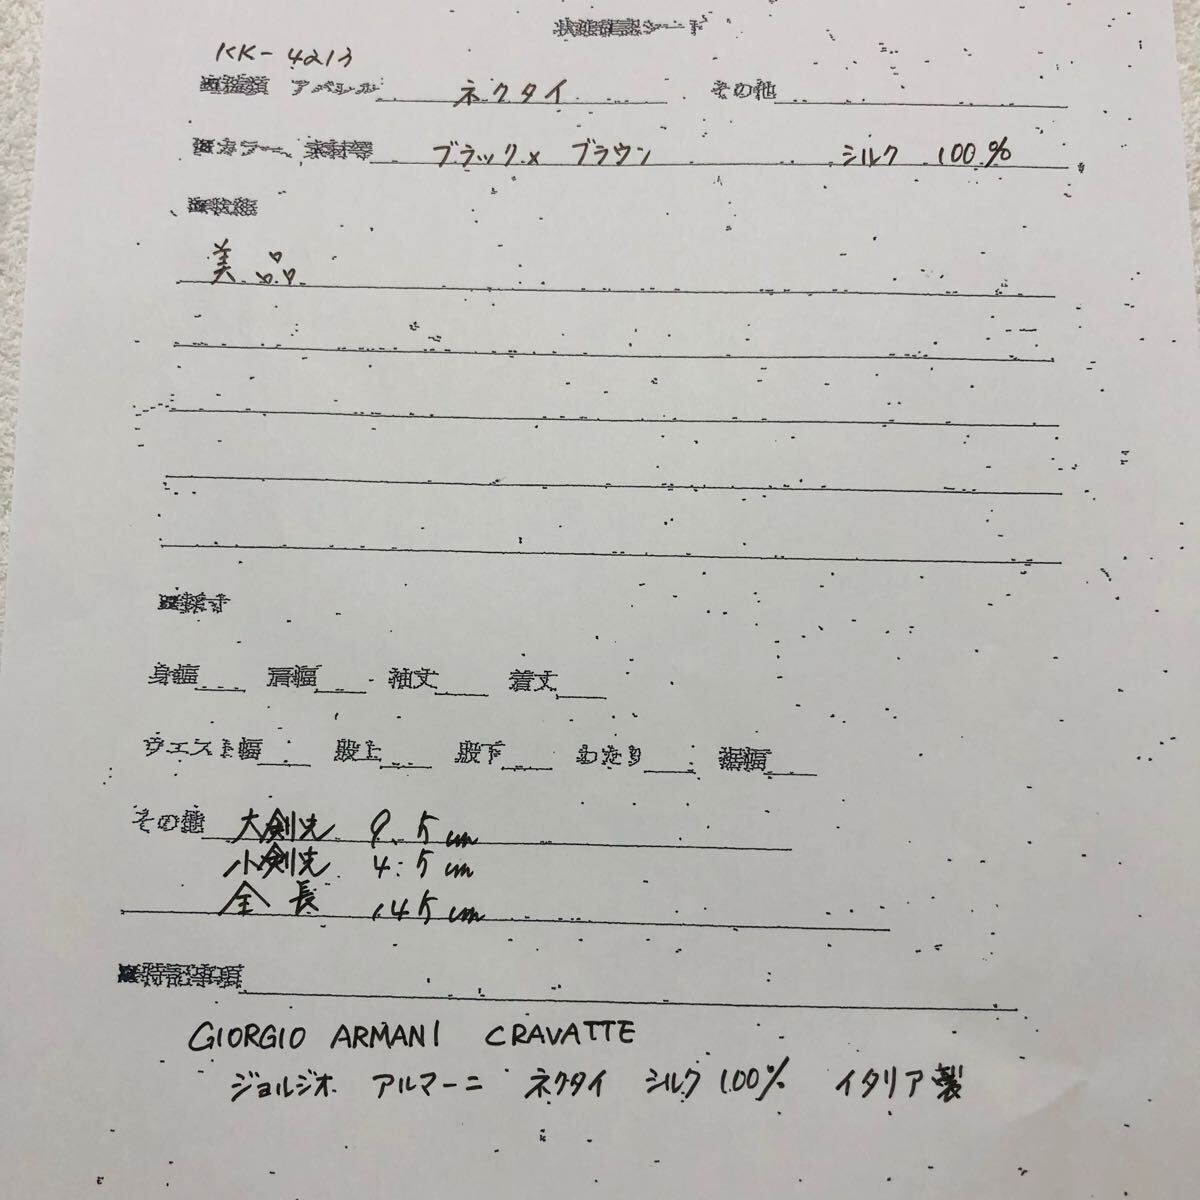 状態確認シート
KK-4213
種類 アパレル ネクタイ その他
カラー、素材等 ブラック× ブラウン シルク 100%
状態
美品
採寸
身幅 肩幅 袖丈 着丈
ウエスト幅 股上 股下 わたり 裾幅
その他 大剣先 9.5cm
小剣先 4.5cm
全長 145cm
特記事項
GIORGIO ARMANI CRAVATTE
ジョルジオ アルマーニ ネクタイ シルク100% イタリア製